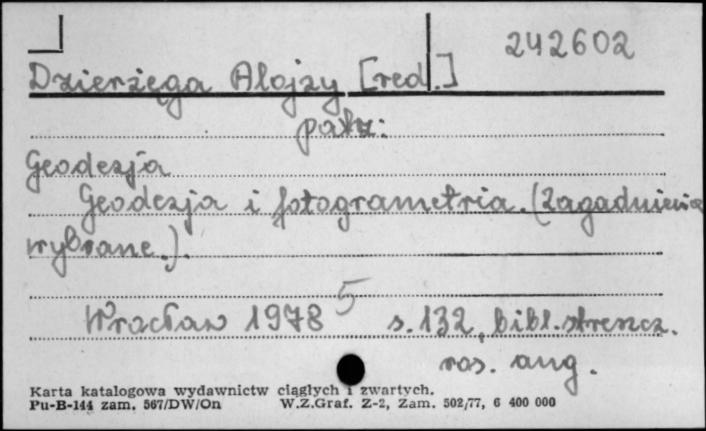 242602
Dzierżęga Alojzy [red.]
patrz:
Geodezja
Geodezja i fotogrametria. (Zagadnienia
wybrane.).
Wrocław 1978 5 s. 132, bibl. streszcz.
ros. ang.
Karta katalogowa wydawnictw ciągłych i zwartych.
Pu-B-144 zam. 567/DW/On W.Z.Graf. Z-2, Zam. 502/77, 6 400 000